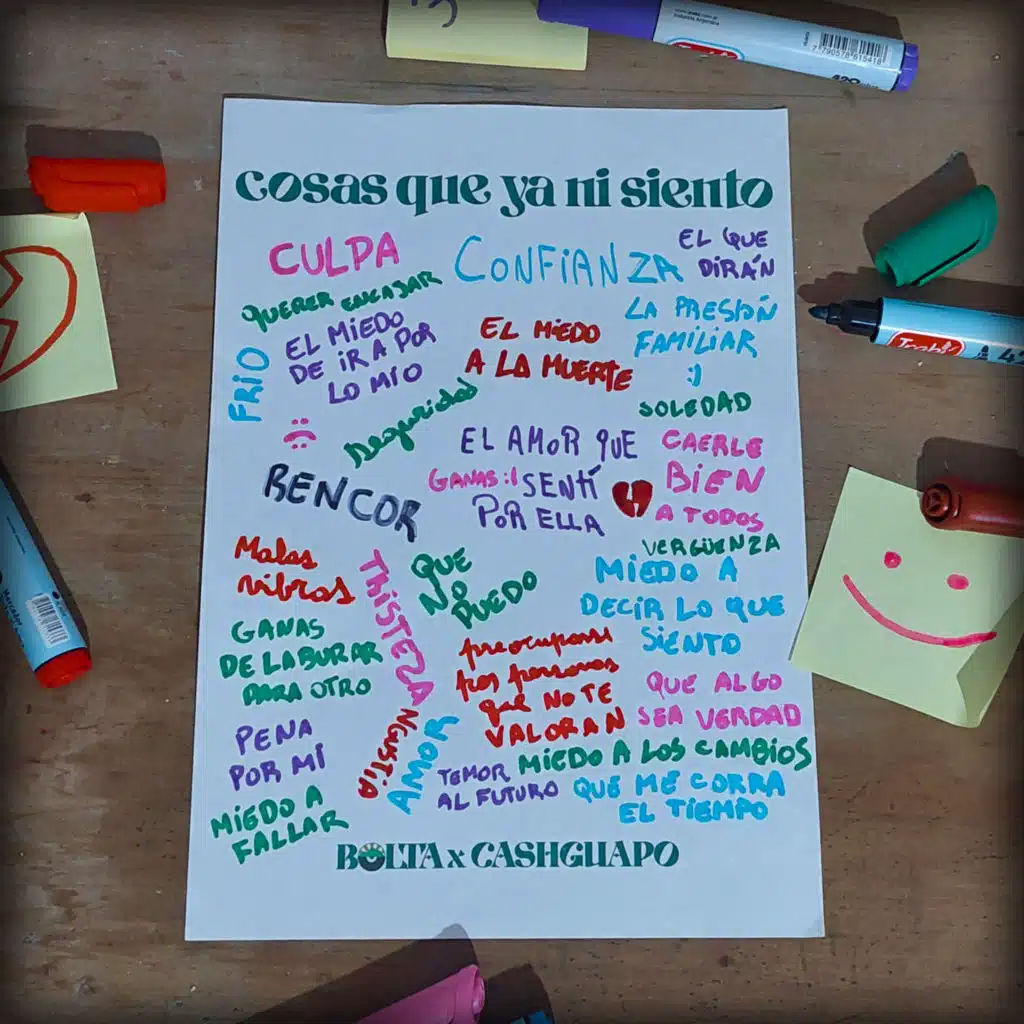 cosas que ya ni siento
CULPA
CONFIANZA
EL QUE
DIRÁN
QUERER ENCAJAR
LA PRESIÓN
FAMILIAR
:)
FRIO
EL MIEDO
DE IR A POR
LO MIO
EL MIEDO
A LA MUERTE
SOLEDAD
:(
Seguridad
EL AMOR QUE
SENTÍ
POR ELLA
GANAS :(
CAERLE
BIEN
A TODOS
RENCOR
VERGÜENZA
Malas
vibras
TRISTEZA
QUE
NO
PUEDO
MIEDO A
DECIR LO QUE
SIENTO
GANAS
DE LABURAR
PARA OTRO
preocuparme
por personas
que NO TE
VALORAN
QUE ALGO
SEA VERDAD
PENA
POR MÍ
ANGUSTIA
AMOR
TEMOR
AL FUTURO
MIEDO A LOS CAMBIOS
QUE ME CORRA
EL TIEMPO
MIEDO A
FALLAR
BOLTA x CASHGUAPO
Industria Argentina
7790578615418
420
Trabi
42